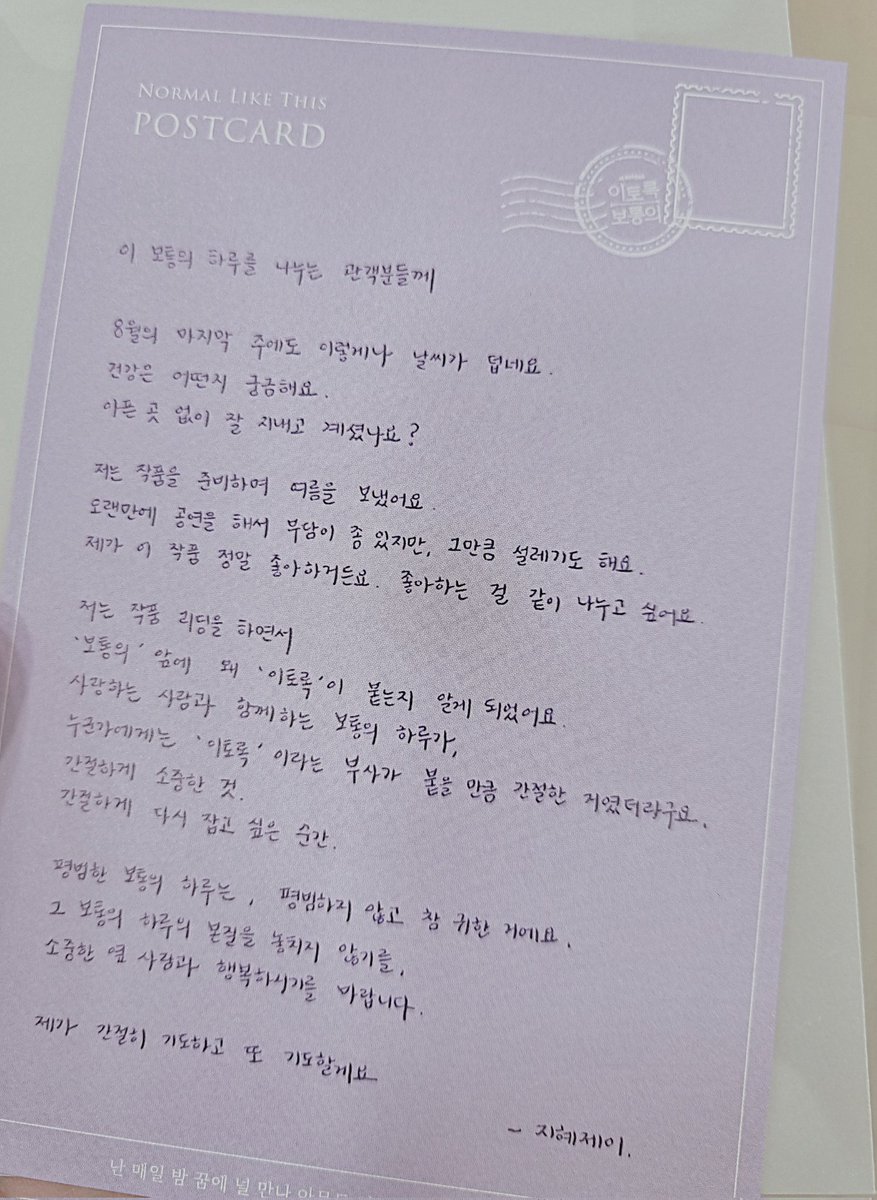 NORMAL LIKE THIS
POSTCARD
이토록
보통의
이 보통의 하루를 나누는 관객분들께
8월의 마지막 주에도 이렇게나 날씨가 덥네요.
건강은 어떤지 궁금해요.
아픈 곳 없이 잘 지내고 계셨나요?
저는 작품을 준비하며 여름을 보냈어요.
오랜만에 공연을 해서 부담이 좀 있지만, 그만큼 설레기도 해요.
제가 이 작품 정말 좋아하거든요. 좋아하는 걸 같이 나누고 싶어요.
저는 작품 리딩을 하면서
'보통의' 앞에 왜 '이토록'이 붙는지 알게 되었어요.
사랑하는 사람과 함께하는 보통의 하루가,
누군가에게는 '이토록' 이라는 부사가 붙을 만큼 간절한 거였더라구요.
간절하게 소중한 것.
간절하게 다시 잡고 싶은 순간.
평범한 보통의 하루는, 평범하지 않고 참 귀한 거에요.
그 보통의 하루의 본질을 놓치지 않기를,
소중한 옆 사람과 행복하시기를 바랍니다.
제가 간절히 기도하고 또 기도할게요
- 지혜제이.
난 매일 밤 꿈에 널 만나